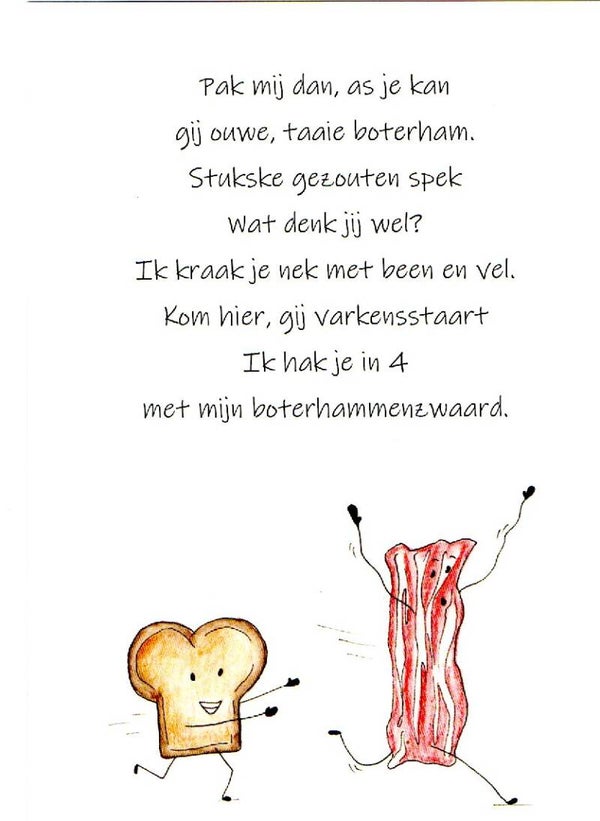 Pak mij dan, as je kan
gij ouwe, taaie boterham.
Stukske gezouten spek
Wat denk jij wel?
Ik kraak je nek met been en vel.
Kom hier, gij varkensstaart
Ik hak je in 4
met mijn boterhammenzwaard.